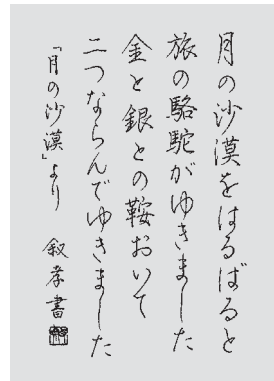 月の沙漠をはるばると
旅の駱駝がゆきました
金と銀との鞍おいて
二つならんでゆきました
「月の沙漠」より
叙孝書